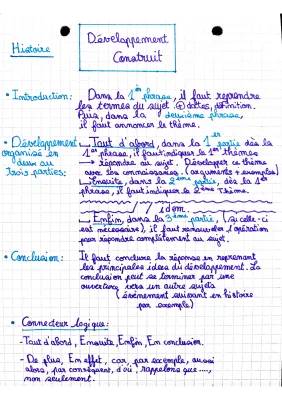 Développement
Construit
Histoire
• Introduction: Dans la 1ère phrase, il faut reprendre
les termes du sujet ⊕ dattes, définition.
Puis, dans la deuxième phrase,
il faut annoncer le thème.
• Développement organisé en deux ou trois parties:
→ Tout d'abord, dans la 1er partie dès la
1er phrase, il faut indiquer le 1er thèmes
→ répondre au sujet → Développer ce thème
avec les connaissances. (arguments + exemples)
→ Ensuite, dans la 2ème partie, dès la 1er
phrase, il faut indiquer le 2ème Thème.
// idem
→ Enfin, dans la 3ème partie, (si celle-ci
est nécessaire), il faut renouveler l'opération
pour répondre complètement au sujet.
• Conclusion: Il faut conclure la réponse en reprenant
les principales idées du développement. La
conclusion peut se terminer par une
ouverture vers un autre sujets
(événement suivant en histoire
par exemple)
• Connecteur logique:
-Tout d'abord, Ensuite, Enfin, En conclusion.
- De plus, En effet, car, par exemple, aussi
alors, par conséquent, d'où, rappelons que ....,
non seulement.